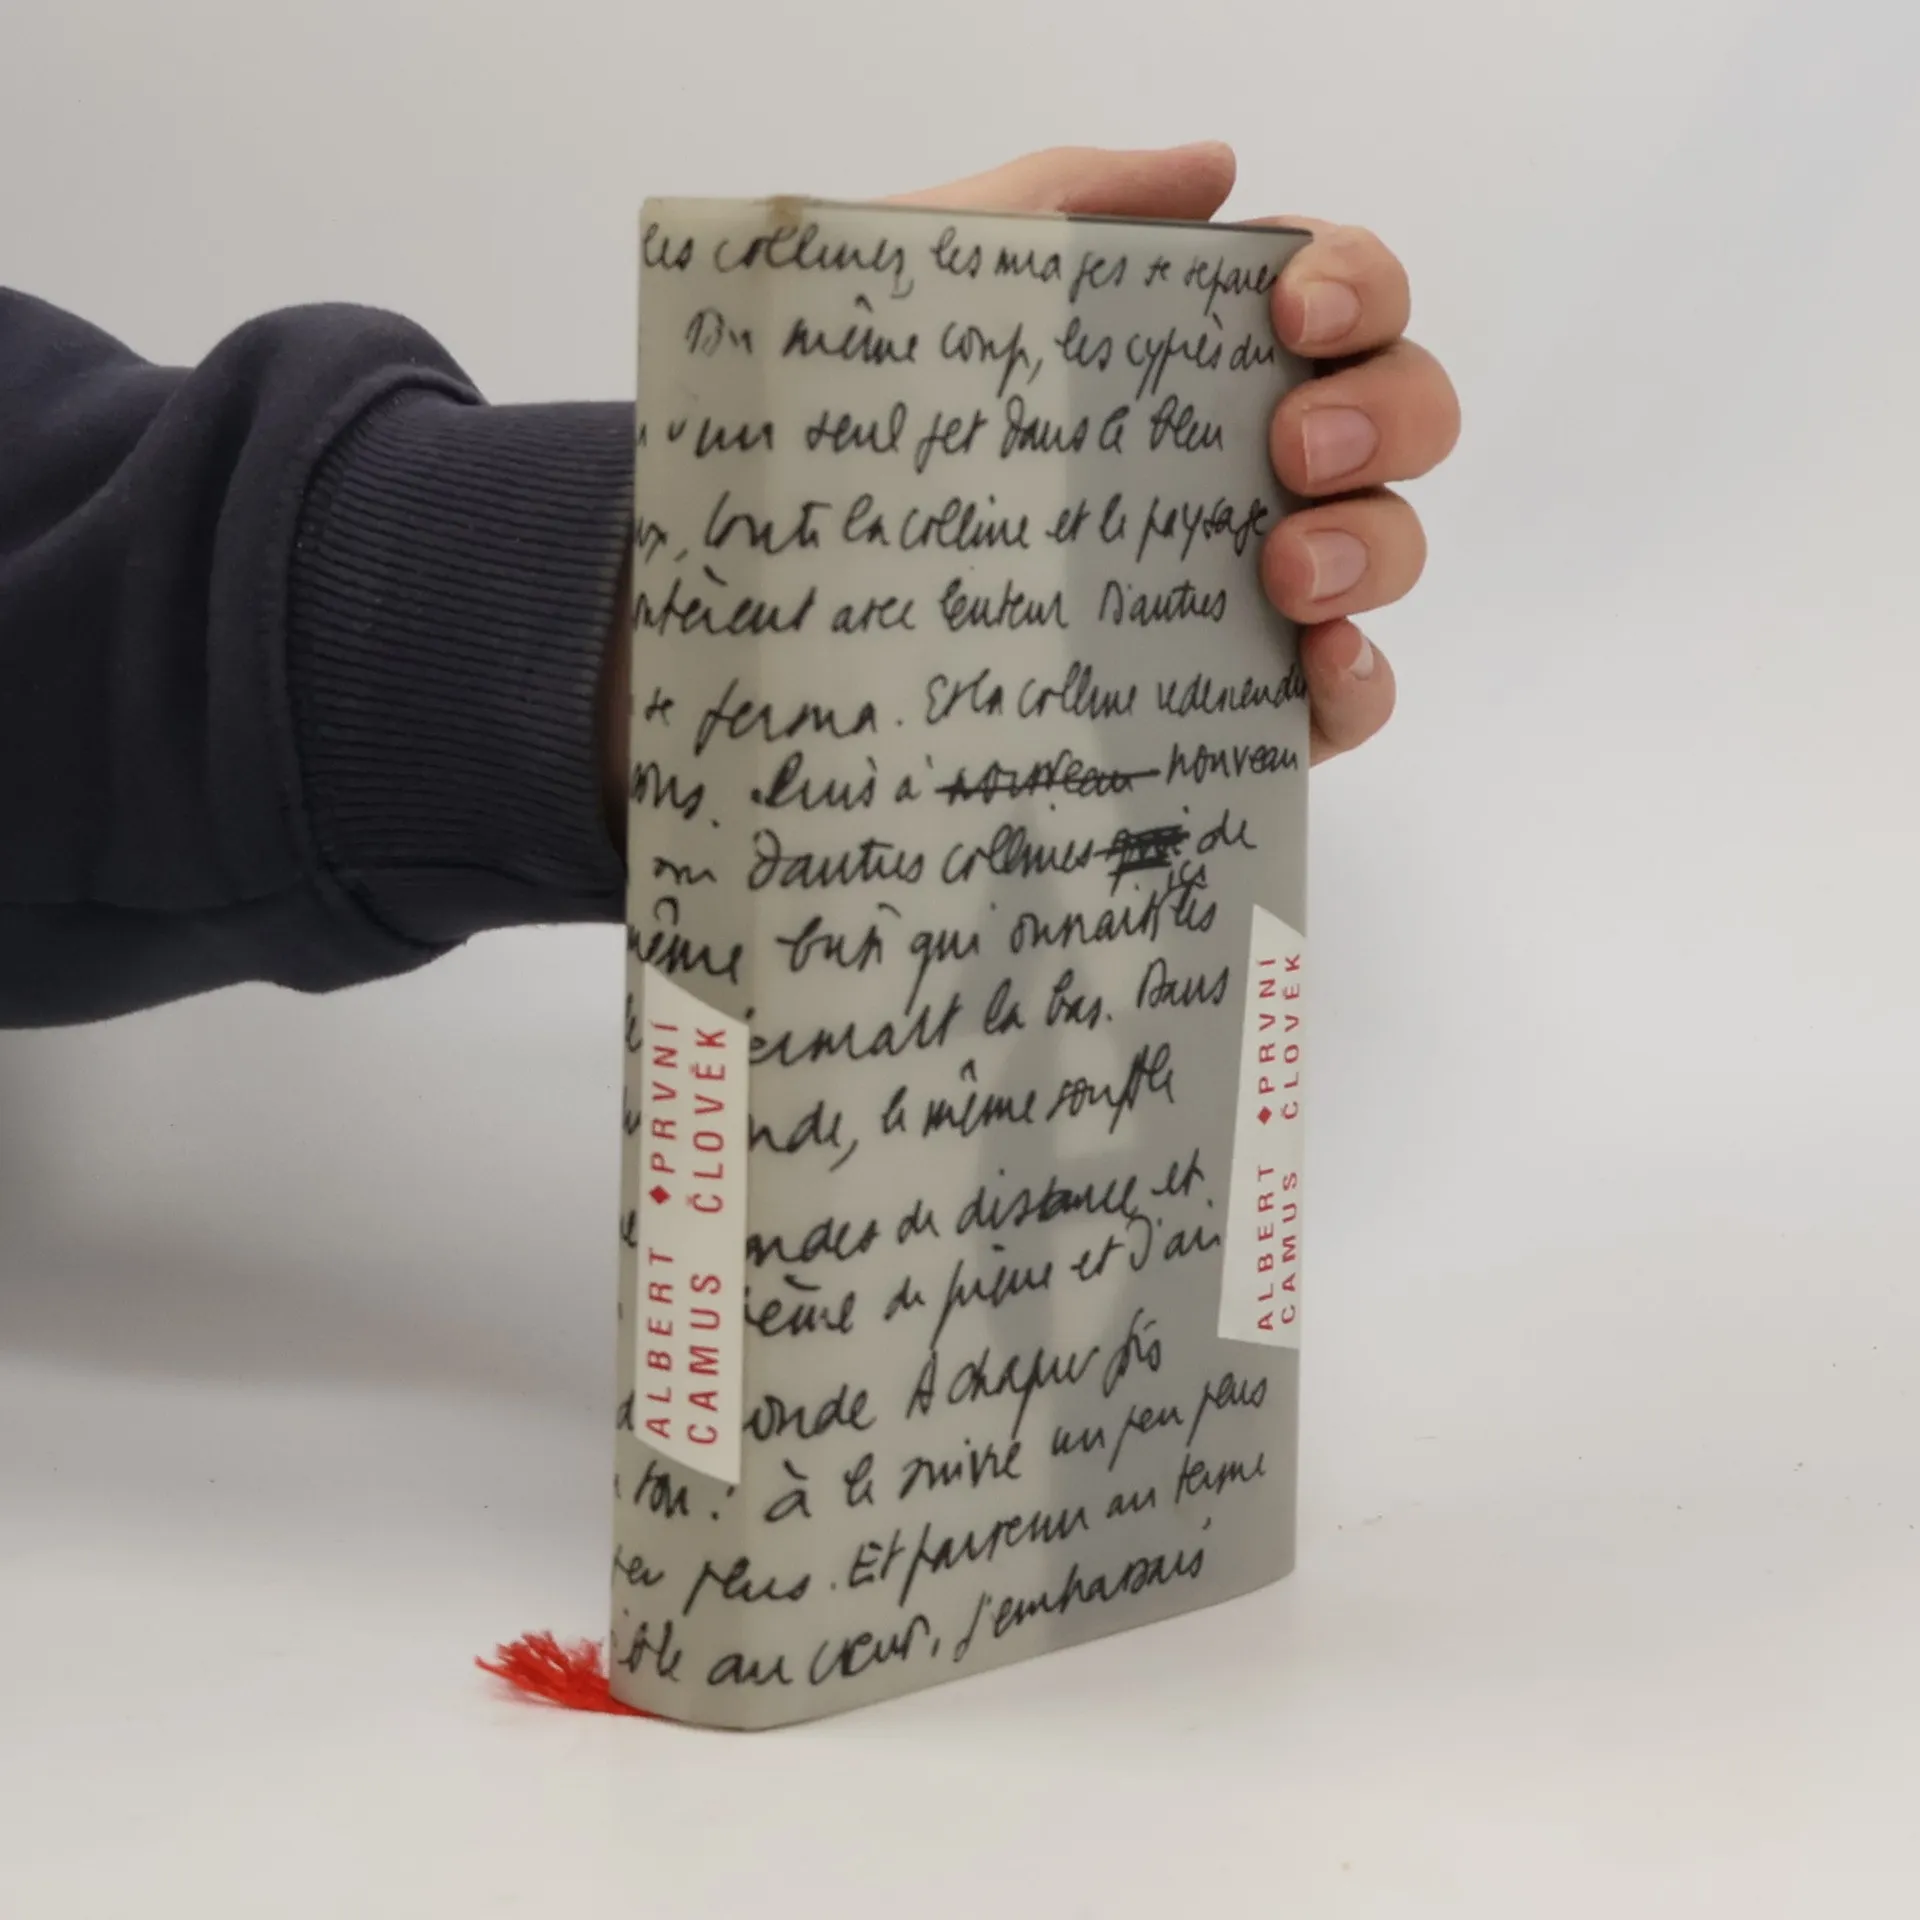 les collines, les nuages se séparè
Du même coup, les cyprès du
un seul jet dans le bleu
toute la colline et le paysage
avec lenteur D'autres
se ferma. Et la colline redescendit
Puis à nouveau nouveau
d'autres collines de
même qui les
là bas. Dans
le même souffle
de distance et
de pierre et d'air
A chaque fois
ton : à le suivre un peu plus
plus. Et parvenu au terme
au cœur, j'embrassais
ALBERT ◆PRVNÍ
CAMUS ČLOVĚK
ALBERT ◆PRVNÍ
CAMUS ČLOVĚK